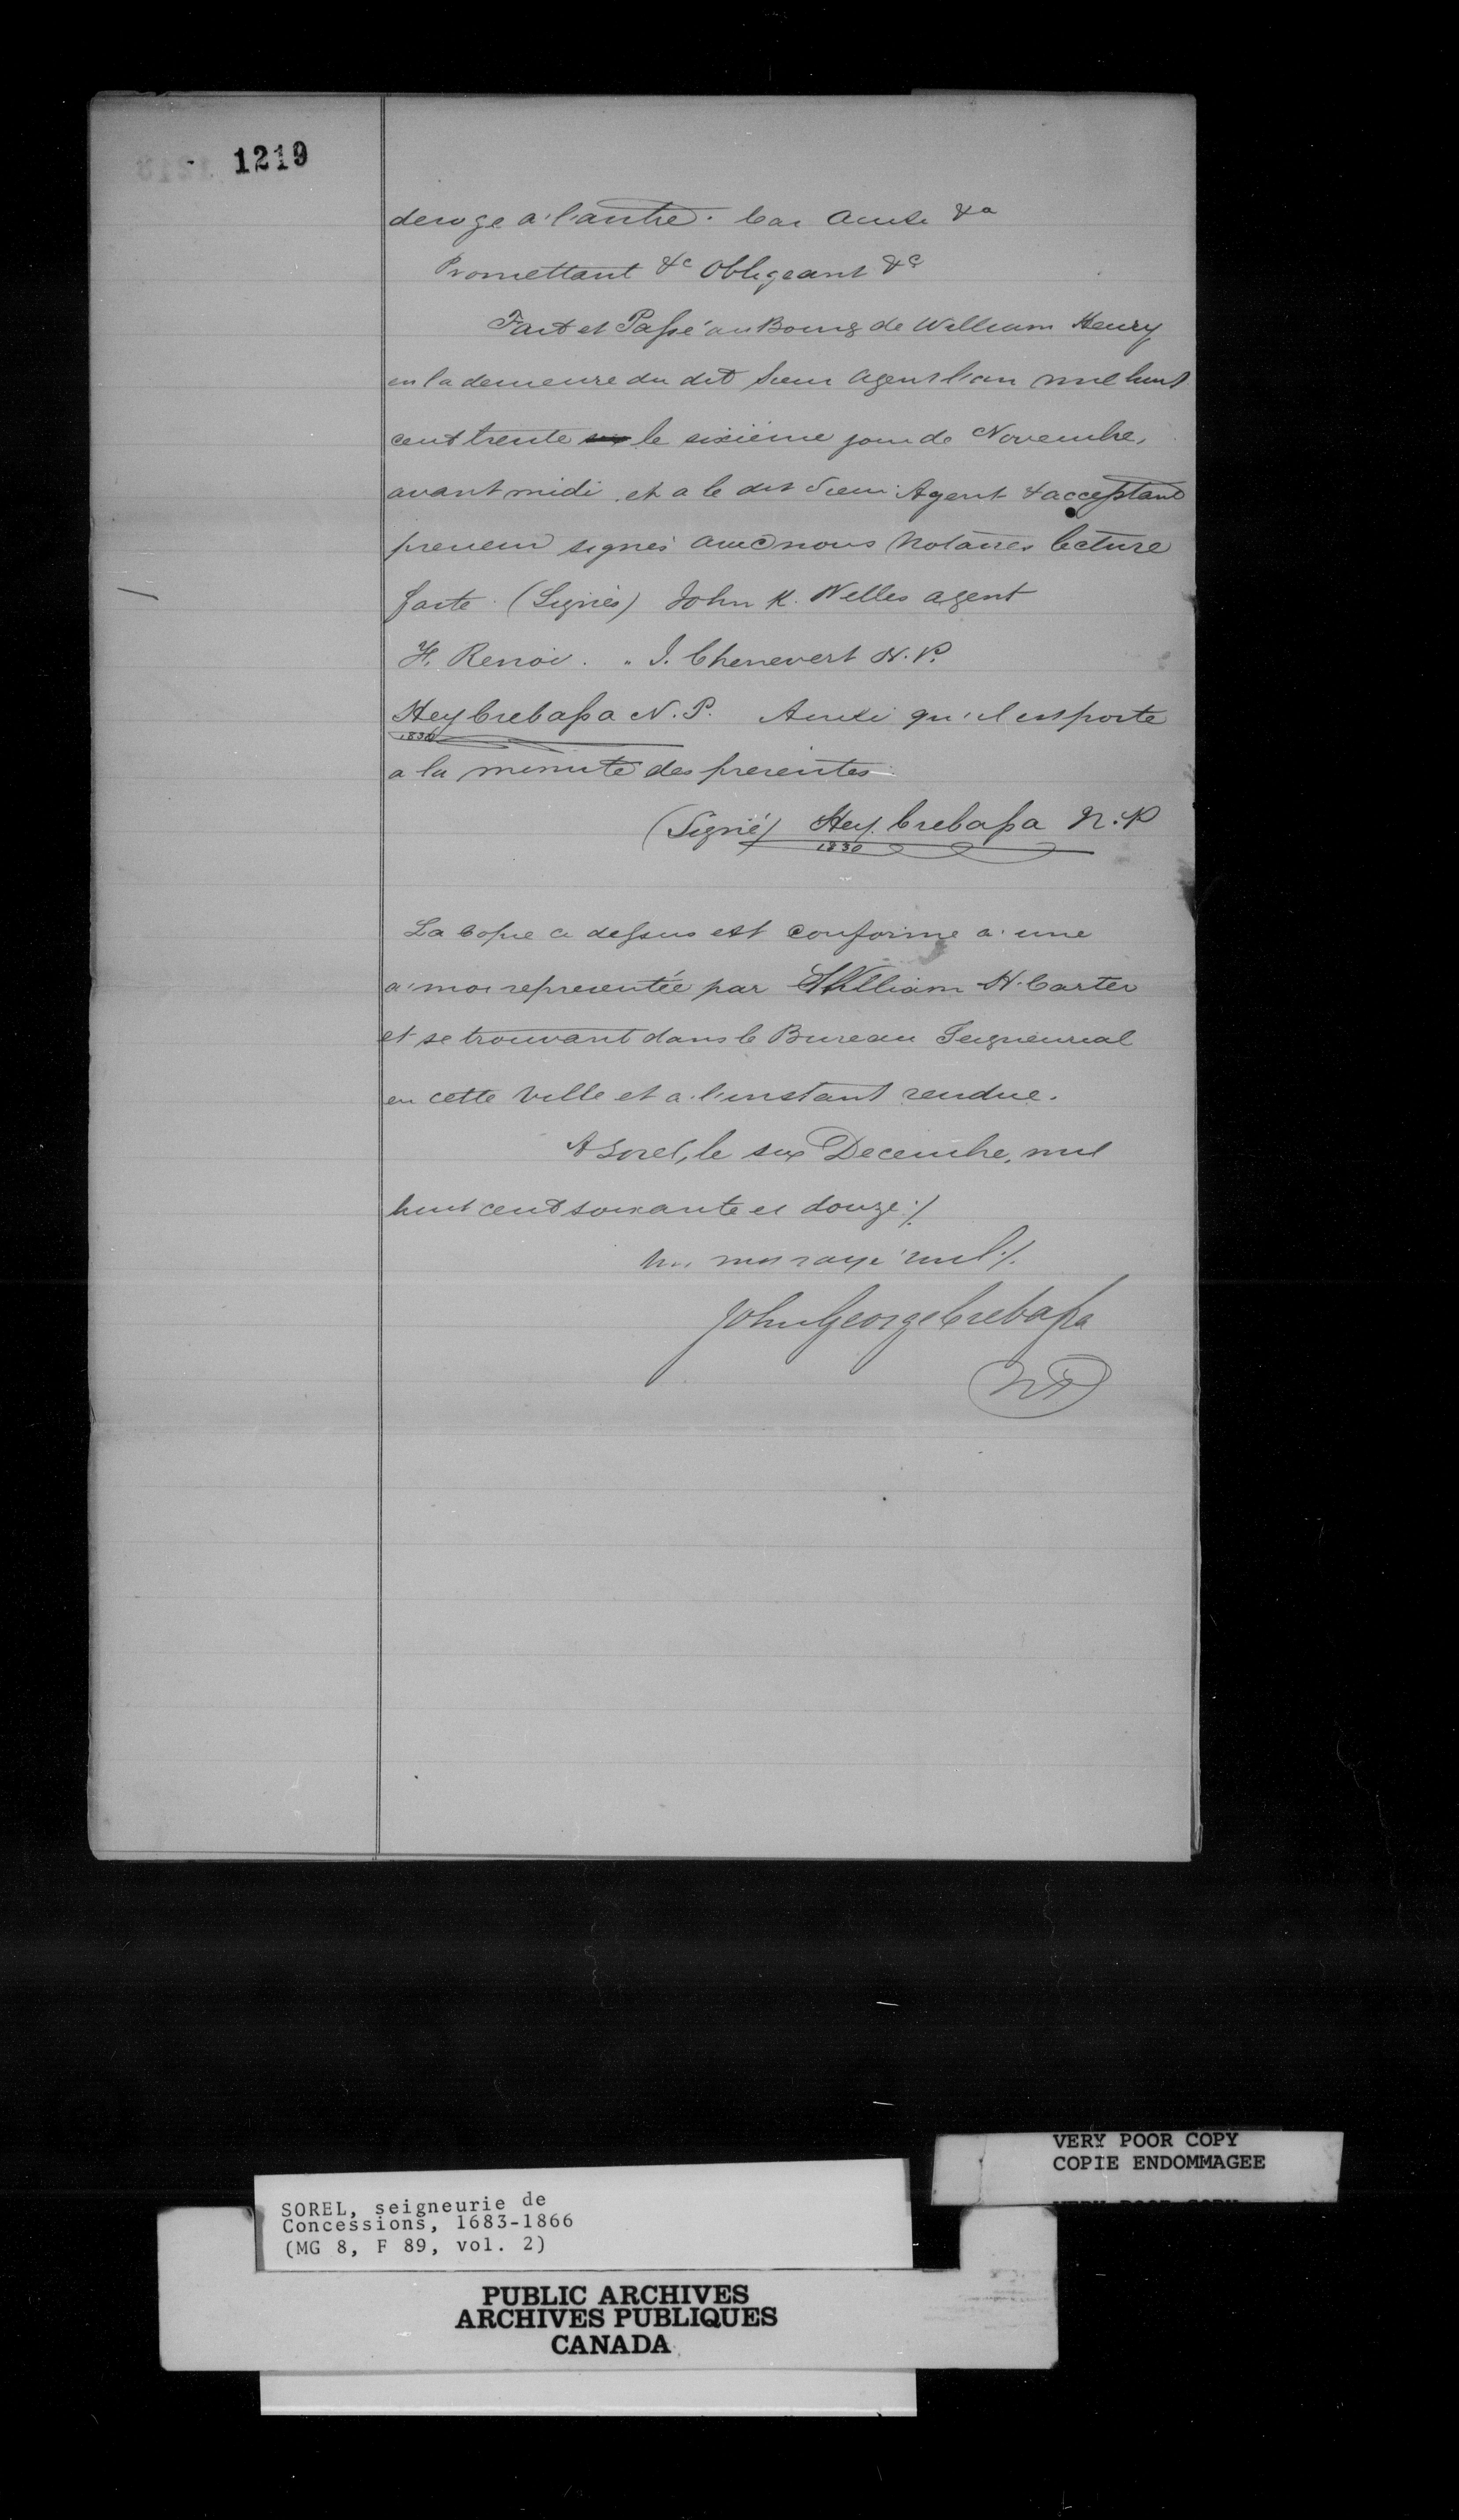 1219
deroge a' l'autre. Car ainsi &a
Promettant &c Obligeant &c
Fait et Passé au Bourg de William Henry
en la demeure du dit Sieur Agent l'an mil huit
cent trente six le sixième jour de Novembre,
avant midi et a le dit Sieur Agent & acceptant
preneur signés avec nous Notaires lecture
faite. (Signés) John K. Welles agent
H. Renoi. " J. Chenevert N.P.
Hey Crebassa N.P. Ainsi qu'il est porté
1830
a la minute des presentes
(Signé) Hey. Crebassa N.P
1830
La copie ci dessus est conforme a' une
a' moi representée par William H. Carter
et se trouvant dans le Bureau Seigneurial
en cette Ville et a' l'instant rendue.
A Sorel, le six Decembre, mil
huit cent soixante et douze ./.
Un mot rayé nul ./.
John George Crebassa
NP
VERY POOR COPY
COPIE ENDOMMAGEE
SOREL, seigneurie de
Concessions, 1683-1866
(MG 8, F 89, vol. 2)
PUBLIC ARCHIVES
ARCHIVES PUBLIQUES
CANADA